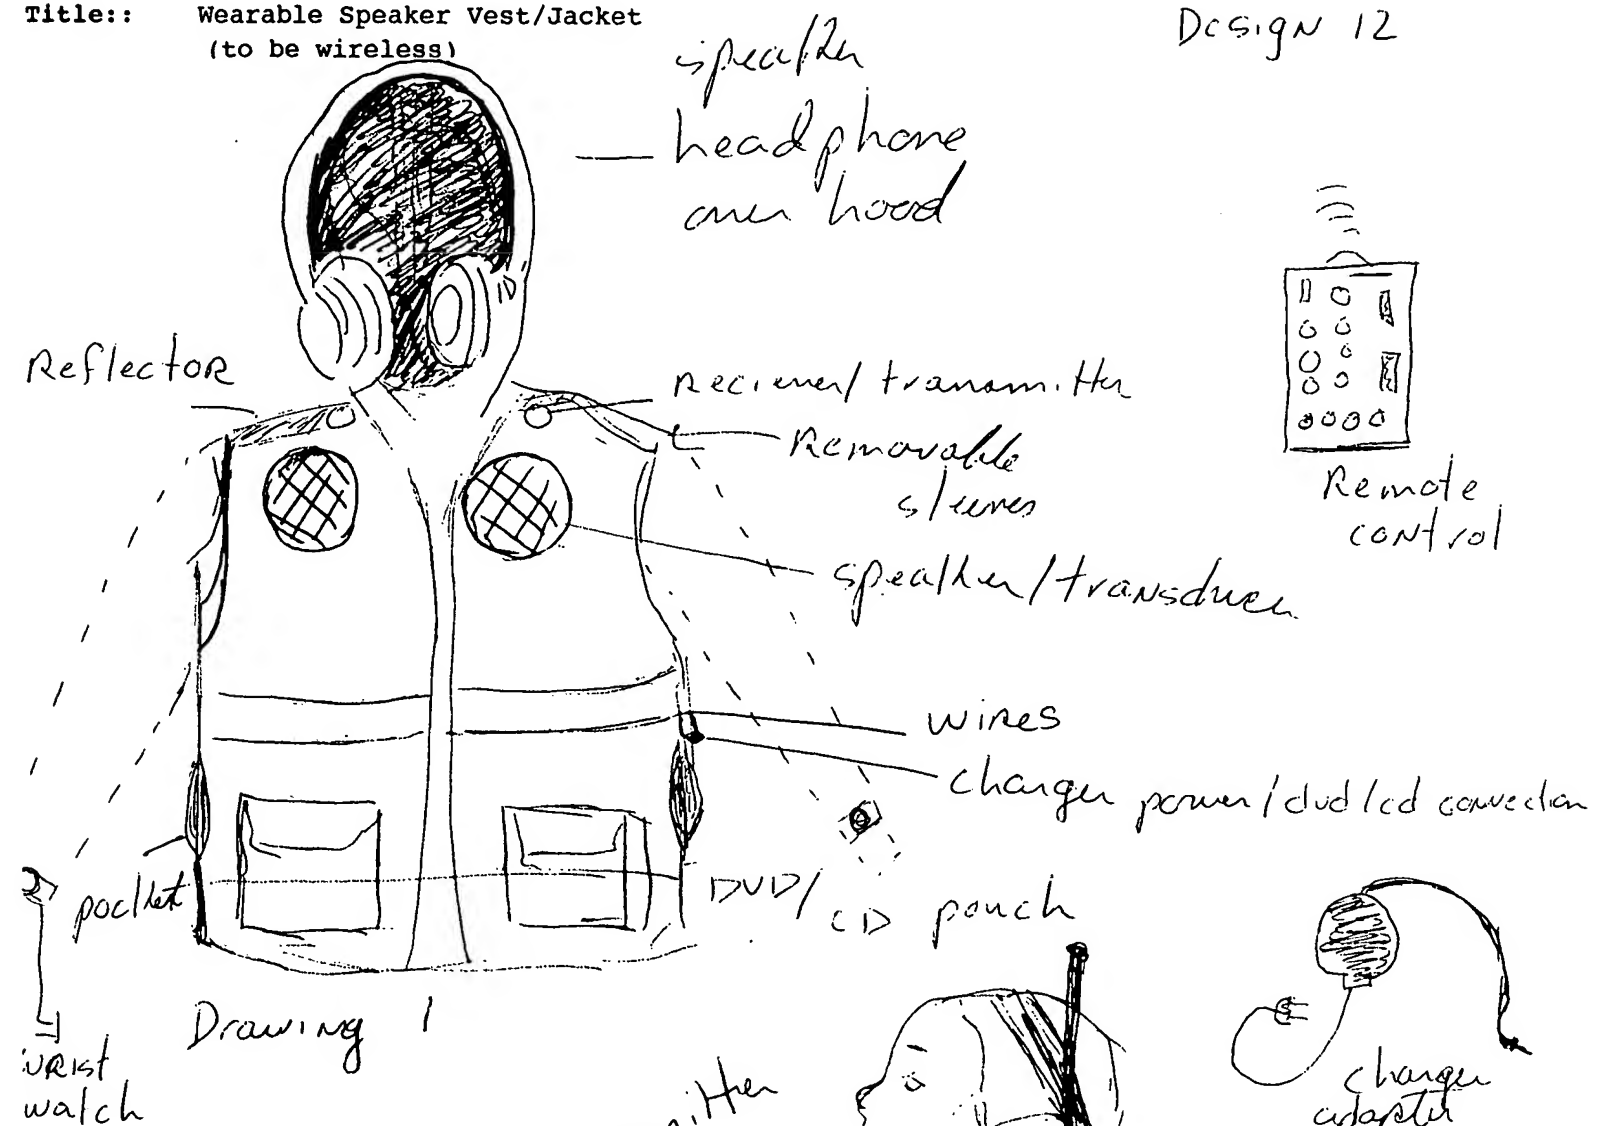 Title:: Wearable Speaker Vest/Jacket
(to be wireless)
Design 12
speaker
headphone
over hood
Reflector
Reciever/transmitter
Removable
sleeves
Remote
control
speaker/transducer
wires
charger power/dvd/cd connection
pocket
DVD/
CD pouch
Drawing 1
wrist
watch
charger
adapter